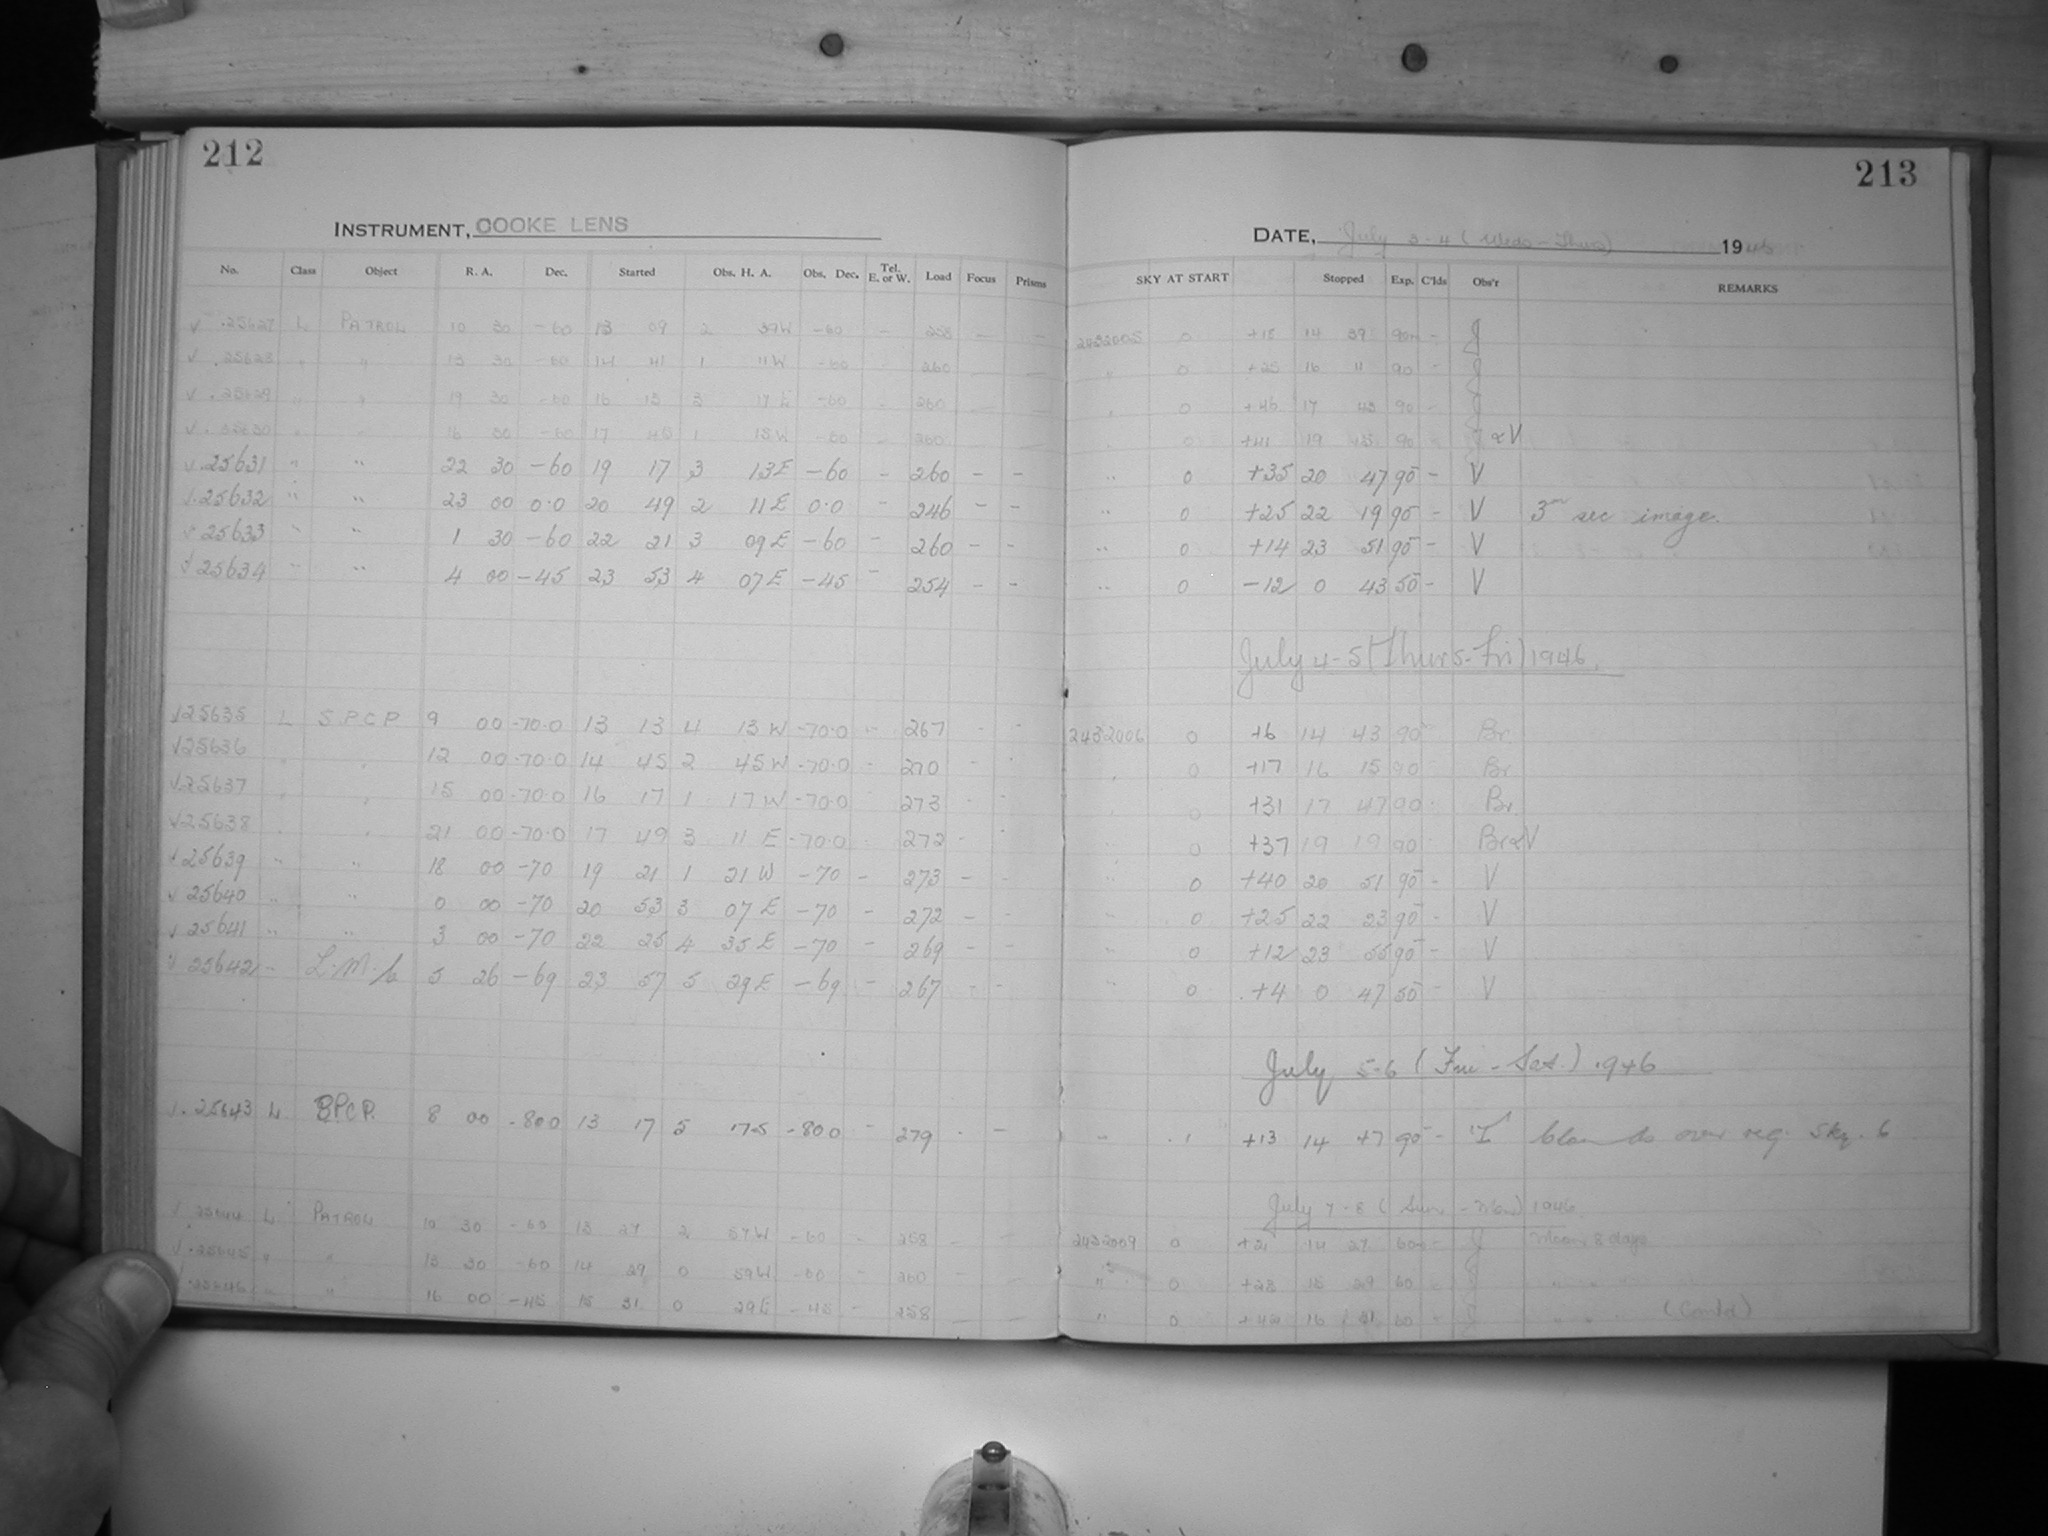 212
213
INSTRUMENT, COOKE LENS
DATE, July 3-4 (Weds-Thurs) 1946
No. Class Object R. A. Dec. Started Obs. H. A. Obs. Dec. Tel. E. or W. Load Focus Prisms SKY AT START Stopped Exp. C'lds Obs'r REMARKS
√ .25627 L PATROL 10 30 -60 13 09 2 39W -60 - 258 - - 2432005 0 +18 14 39 90m - J
√ .25628 " " 13 30 -60 14 41 1 11W -60 - 260 - - " 0 +25 16 11 90 - J
√ .25629 " " 19 30 -60 16 13 3 17E -60 - 260 - - " 0 +46 17 43 90 - J
√ .25630 " " 16 30 -60 17 45 1 15W -60 - 260 - - " 0 +41 19 15 90 - J & V
√ .25631 " " 22 30 -60 19 17 3 13E -60 - 260 - - " 0 +35 20 47 90 - V
√ .25632 " " 23 00 0.0 20 49 2 11E 0.0 - 246 - - " 0 +25 22 19 90 - V 3 sec image.
√ 25633 " " 1 30 -60 22 21 3 09E -60 - 260 - - " 0 +14 23 51 90 - V
√ 25634 " " 4 00 -45 23 53 4 07E -45 - 254 - - " 0 -12 0 43 50 - V
July 4-5 (Thurs-Fri) 1946.
√25635 L S.P.C.P. 9 00 -70.0 13 13 4 13W -70.0 - 267 - - 2432006 0 +6 14 43 90 Br.
√25636 " " 12 00 -70.0 14 45 2 45W -70.0 - 270 - - " 0 +17 16 15 90 Br
√25637 " " 15 00 -70.0 16 17 1 17W -70.0 273 - - " 0 +31 17 47 90 Br.
√25638 " " 21 00 -70.0 17 49 3 11 E -70.0 272 - - " 0 +37 19 19 90 Br&V
√25639 " " 18 00 -70 19 21 1 21W -70 - 273 - - " 0 +40 20 51 90 - V
√ 25640 " " 0 00 -70 20 53 3 07E -70 - 272 - - " 0 +25 22 23 90 - V
√ 25641 " " 3 00 -70 22 25 4 35E -70 - 269 - - " 0 +12 23 55 90 - V
√ 25642 - L.M.C. 5 26 -69 23 57 5 29E -69 - 267 - - " 0 +4 0 47 50 - V
July 5-6 (Fri - Sat.) 1946
√. 25643 L SPCP. 8 00 -80.0 13 17 5 -80.0 - 279 - - - 1 +13 14 47 90 - over reg. Sky. 6
July 7-8 (Sun - Mon) 1946.
√ .25644 L PATROL 10 30 -60 13 27 2 57W -60 - 258 - - 2432009 0 +21 14 27 60m - J Moon 8 days
√ .25645 " " 13 30 -60 14 29 0 59W -60 - 260 - - " 0 +28 15 29 60 - J " " "
√ .25646 " " 16 00 -45 15 31 0 29E -45 - 258 - - " 0 16 31 60 " J " " "
(Contd)